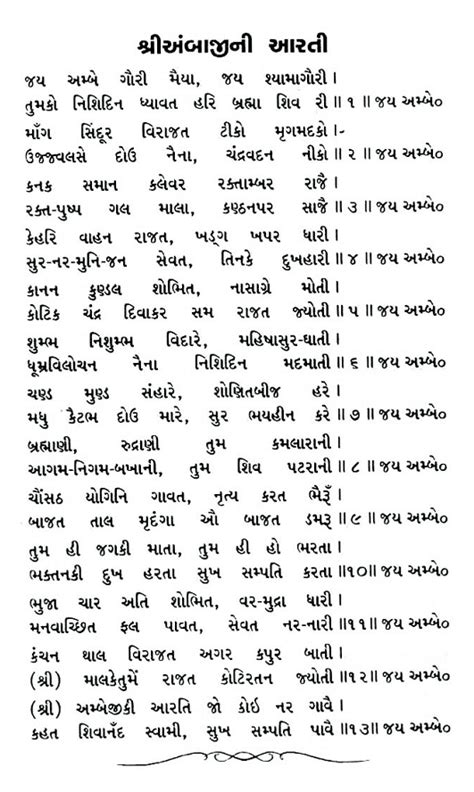 શ્રીઅંબાજીની આરતી
જય અમ્બે ગૌરી મૈયા, જય શ્યામાગૌરી ।
તુમકો નિશિદિન ધ્યાવત હરિ બ્રહ્મા શિવ રી ॥ ૧ ॥ જય અમ્બે૦
માઁગ સિંદૂર વિરાજત ટીકો મૃગમદકો ।-
ઉજ્જ્વલસે દોઉ નૈના, ચંદ્રવદન નીકો ॥ ૨ ॥ જય અમ્બે૦
કનક સમાન કલેવર રક્તામ્બર રાજૈ ।
રક્ત-પુષ્પ ગલ માલા, કણ્ઠનપર સાજૈ ॥ ૩ ॥ જય અમ્બે૦
કેહરિ વાહન રાજત, ખડ્ગ ખપર ધારી ।
સુર-નર-મુનિ-જન સેવત, તિનકે દુખહારી ॥ ૪ ॥ જય અમ્બે૦
કાનન કુણ્ડલ શોભિત, નાસાગ્રે મોતી ।
કોટિક ચંદ્ર દિવાકર સમ રાજત જ્યોતી ॥ ૫ ॥ જય અમ્બે૦
શુમ્ભ નિશુમ્ભ વિદારે, મહિષાસુર-ઘાતી ।
ધૂમ્રવિલોચન નૈના નિશિદિન મદમાતી ॥ ૬ ॥ જય અમ્બે૦
ચણ્ડ મુણ્ડ સંહારે, શોણિતબીજ હરે ।
મધુ કૈટભ દોઉ મારે, સુર ભયહીન કરે ॥ ૭ ॥ જય અમ્બે૦
બ્રહ્માણી, રુદ્રાણી તુમ કમલારાની ।
આગમ-નિગમ-બખાની, તુમ શિવ પટરાની ॥ ૮ ॥ જય અમ્બે૦
ચૌંસઠ યોગિનિ ગાવત, નૃત્ય કરત ભૈરૂઁ ।
બાજત તાલ મૃદંગા ઔ બાજત ડમરૂ ॥ ૯ ॥ જય અમ્બે૦
તુમ હી જગકી માતા, તુમ હી હો ભરતા ।
ભક્તનકી દુખ હરતા સુખ સમ્પતિ કરતા ॥૧૦॥ જય અમ્બે૦
ભુજા ચાર અતિ શોભિત, વર-મુદ્રા ધારી ।
મનવાચ્છિત ફલ પાવત, સેવત નર-નારી ॥૧૧॥ જય અમ્બે૦
કંચન થાલ વિરાજત અગર કપુર બાતી ।
(શ્રી) માલકેતુમેં રાજત કોટિરતન જ્યોતી ॥૧૨॥ જય અમ્બે૦
(શ્રી) અમ્બેજીકી આરતિ જો કોઇ નર ગાવૈ ।
કહત શિવાનઁદ સ્વામી, સુખ સમ્પતિ પાવૈ ॥૧૩॥ જય અમ્બે૦